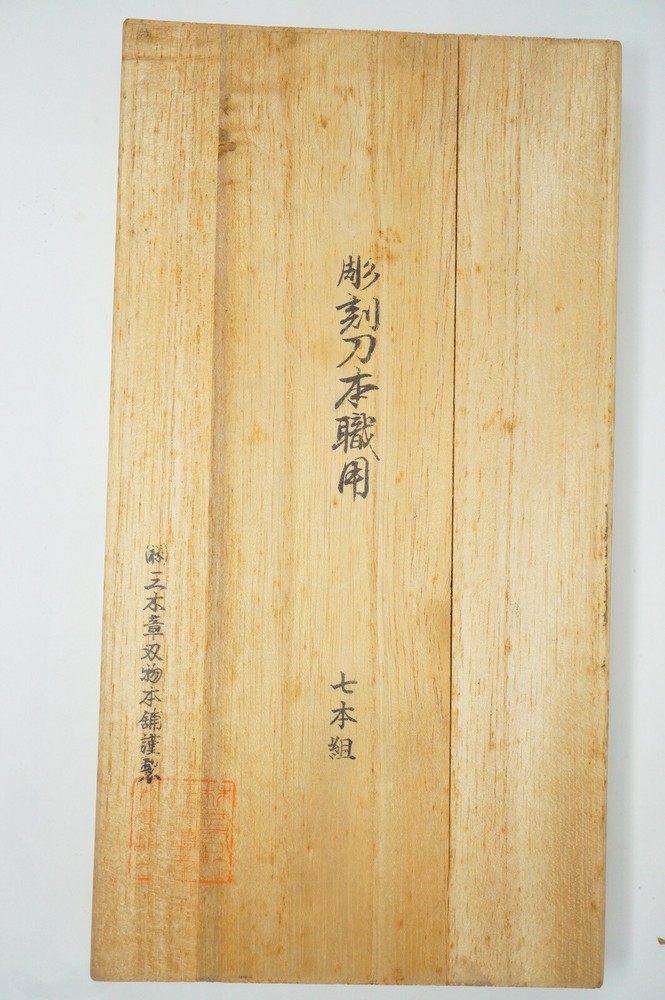 彫刻刀本職用
七本組
㈱三木章刃物本舗謹製